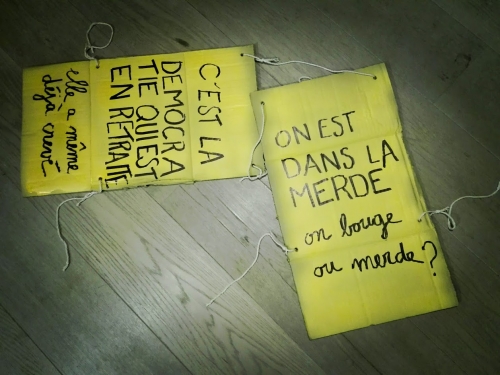 C'EST LA
DEMOCRA
TIE QUI EST
EN RETRAITE
elle a même
déjà crevé
ON EST
DANS LA
MERDE
on bouge
ou merde?